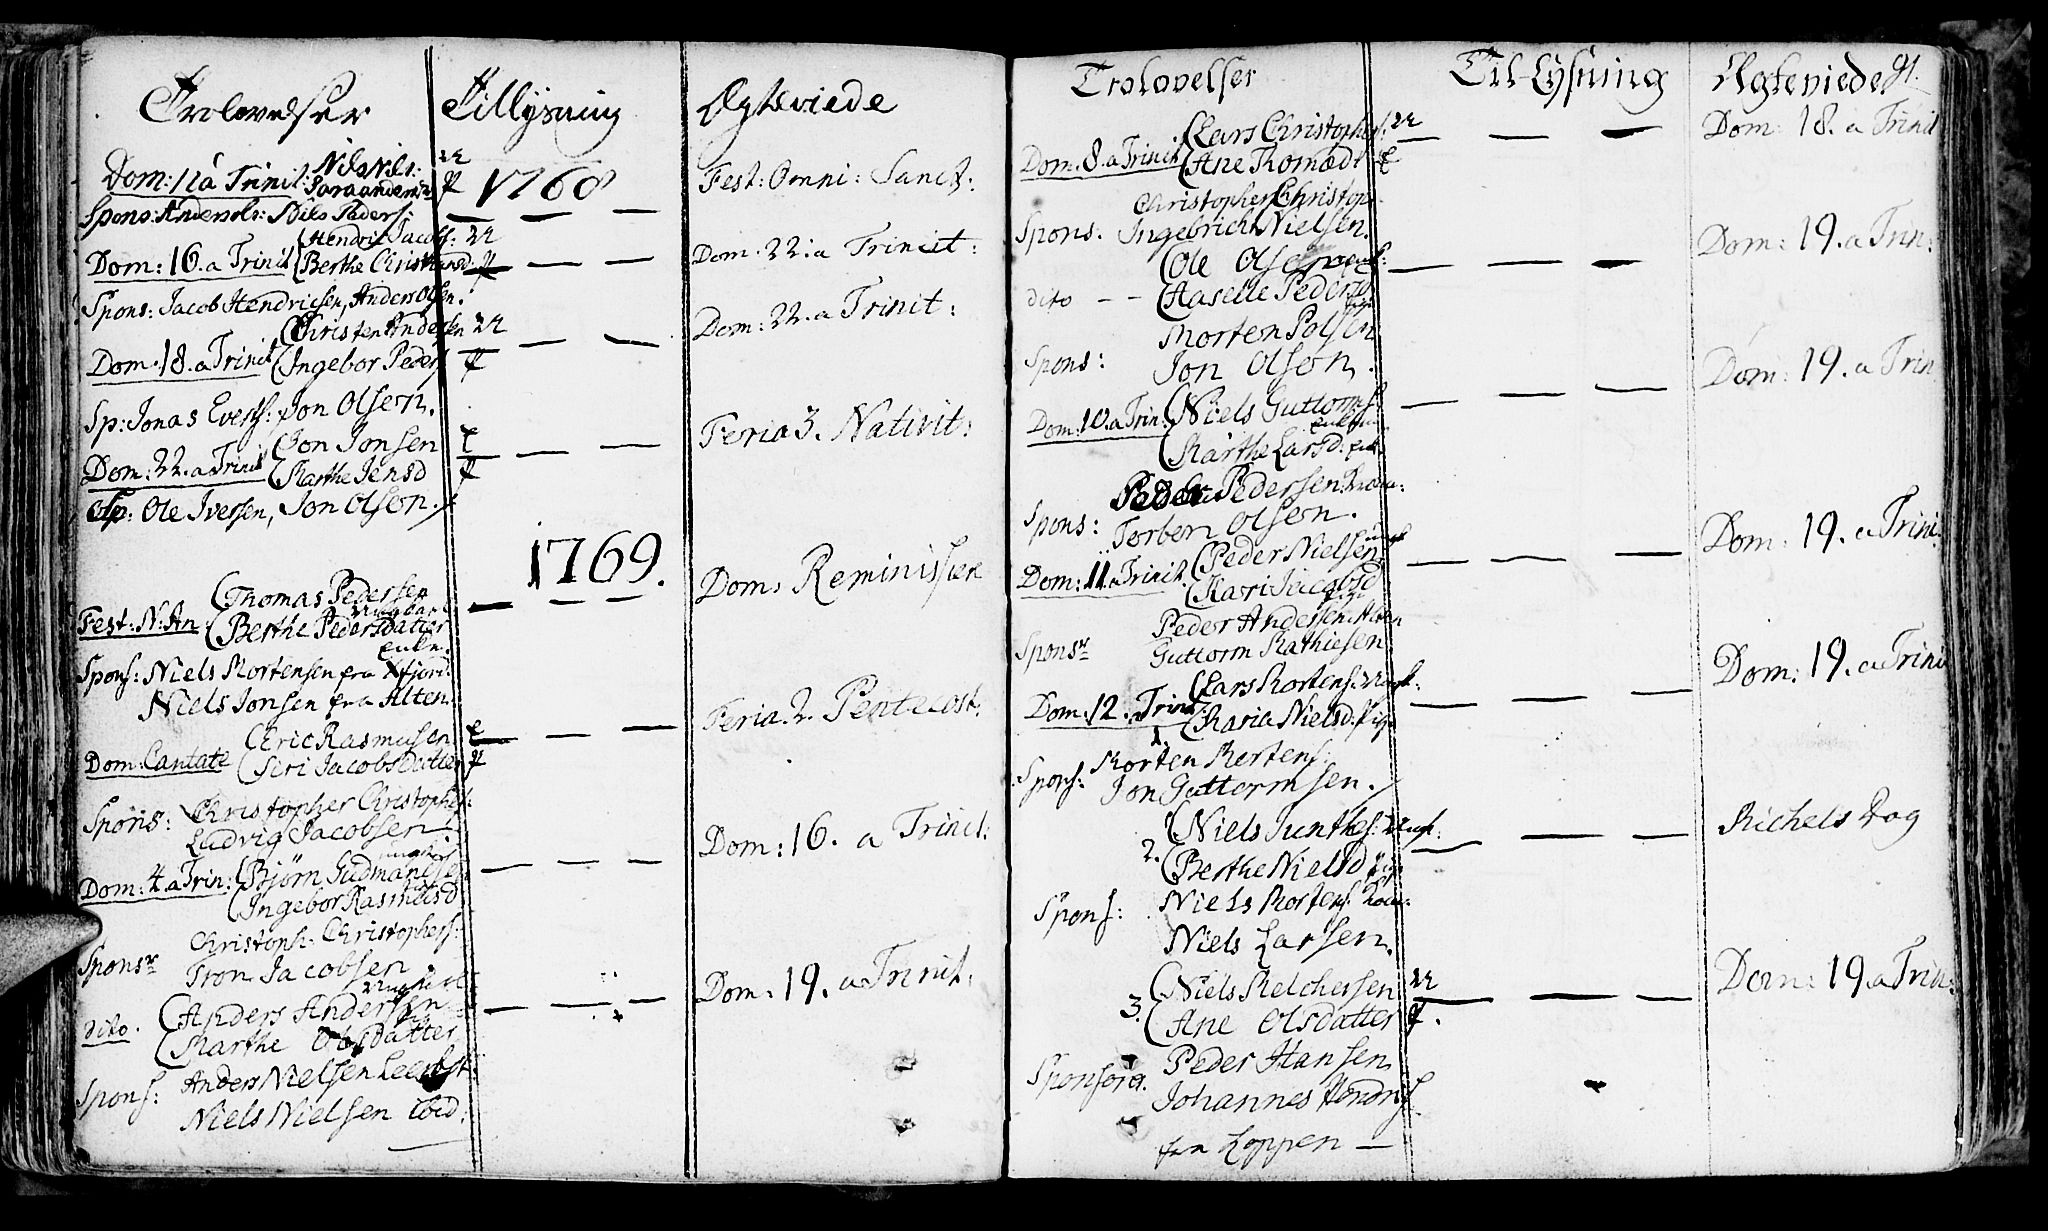 Trolovelser Tillysning Ægteviede
Dom: 11 a Trinit: Nils Nils:
1768 Fest: Omni: Sanct:
Spons: Andersls: Nils Peders:
Dom: 16. a Trinit (Hendric Jacobs: Dom. 22. a Trinit:
(Berthe Christiansd:
Spons: Jacob Hendricsen, Anders Olsen.
(Christen Andersen Dom: 22. a Trinit:
Dom. 18. a Trinit (Ingebor Peders
Sp: Jonas Everts: Jon Olsen. Feria 3. Nativit:
(Jon Jonsen
Dom: 22. a Trinit (Marthe Jensd
Sp: Ole Iversen, Jon Olsen.
1769. Dom. Reminiscere
(Thomas Pedersen
Ungkarl
Fest: N: An (Berthe Pedersdatter
Enke.
Spons: Niels Mortensen fra
Niels Jonsen fra Alten.
Feria. 2. Pentecost.
(Eric Rasmusen
Dom: Cantate (Siri Jacobsdatter
Spons: Christopher Christophers:
Ludvig Jacobsen. Dom: 16. a Trinit:
Dom: 4. a Trin: (Bjørn Gudmandsen
(Ingebor Rasmusd
Christoph. Christophers:
Sponsr Tron Jacobsen Dom: 19. a Trinit:
Ungkarl
dito. (Anders Andersen
(Marthe Olsdatter
Spons: Anders Nielsen
Niels Nielsen ibid:
Trolovelser Til-Lysning Ægteviede 91.
(Lars Christophers: Dom: 18. a Trinit
Dom. 8. a Trinit (Ane Thomædt
Christopher Christop
Spons: Ingebrich Nielsen. Dom: 19. a Trin:
(Ole Olsen
dito - - (Maselle Pedersd
Morten Polsen
Spons: Jon Olsen. Dom: 19. a Trin.
Dom: 10. a Trin: (Niels Guttorms:
(Marthe Larsd: enke
Peder Pedersen
Spons: Torben Olsen. Dom: 19. a Trini.
Dom: 11. a Trinit. (Peder Nielsen
(Kari Jacobsd
Peder Andersen Alten
Sponsr Guttorm Mathiesen Dom: 19. a Trini
1. (Lars Mortens: Ungk:
Dom: 12. a Trinit (Maria Nielsd: Pige
Spons: Morten Mortens:
Jon Guttormsen.
2. (Niels Junthes: Ungk: Michels Dag
(Berthe Nielsd Pige
Spons: Niels Mortens:
Niels Larsen.
3. (Niels Melchersen Dom: 19. a Trin:
(Ane Olsdatter
Sponsora. Peder Hansen
Johannes Hendrics
fra Loppen —